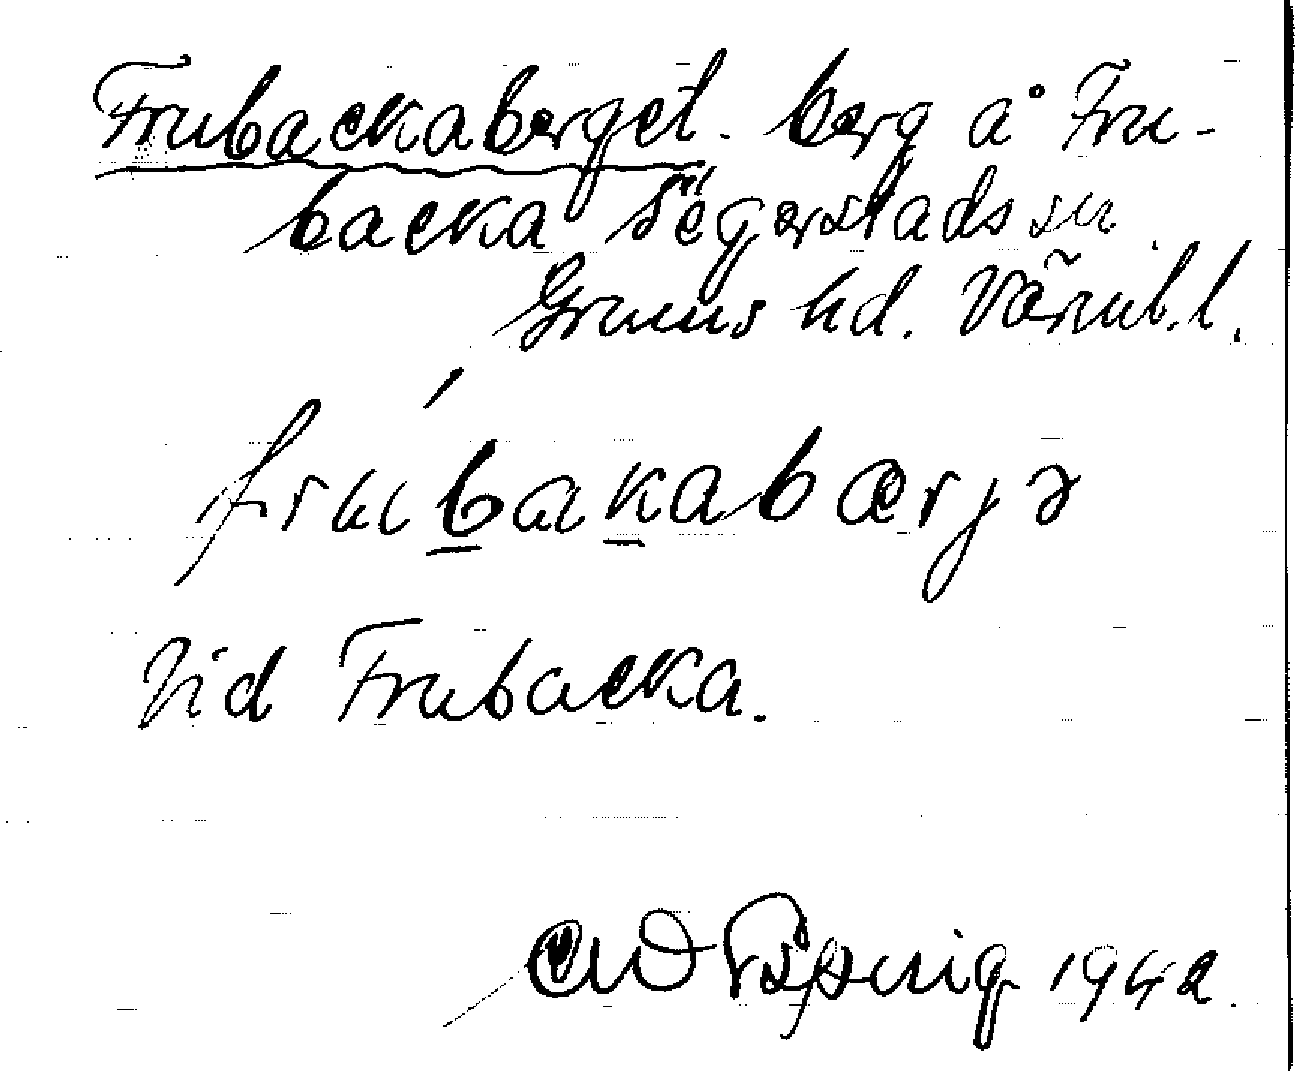 Frubackaberget. berg å Fru-
backa Segerstads sn
Grums hd. Värml. l.
fruubakabærjə
Vid Frubacka.
1942.